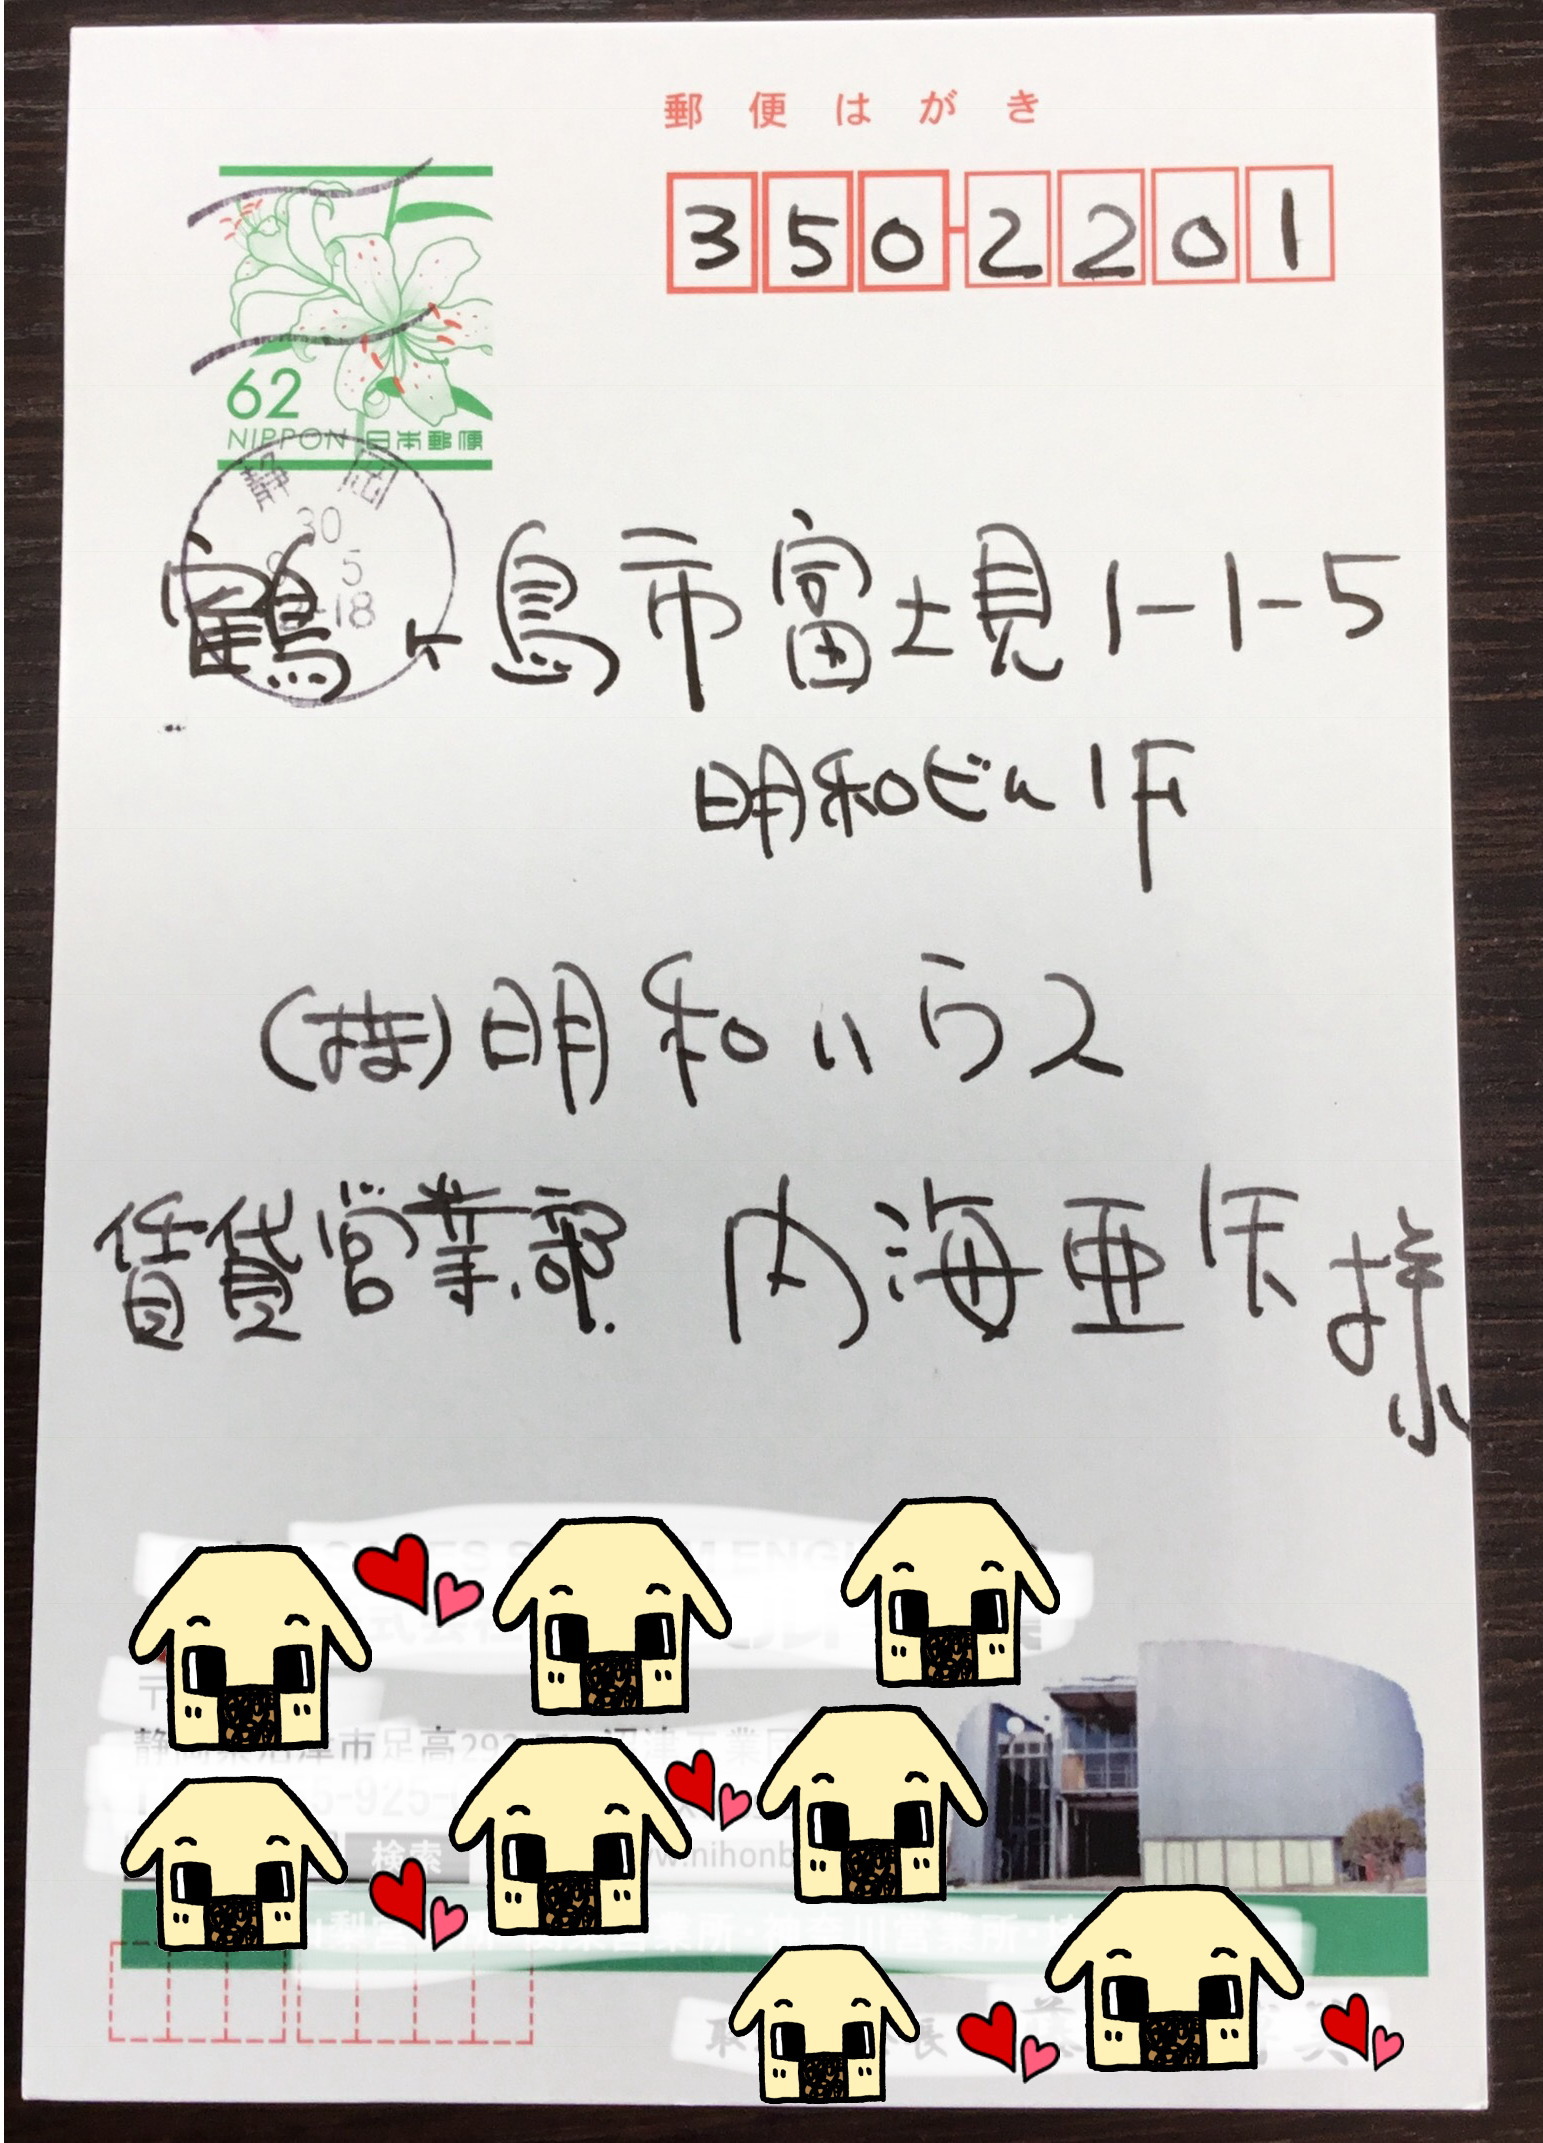 郵便はがき
350-2201
62
NIPPON 日本郵便
静岡
30
5
18
鶴ヶ島市富士見1-1-5
明和ビル1F
(株)明和ハウス
賃貸営業部 内海亜 様
ENG
式会社
〒
静 津市足高29
5-925-
検索 w.nihonb
梨 所・神奈川営業所・
取 長